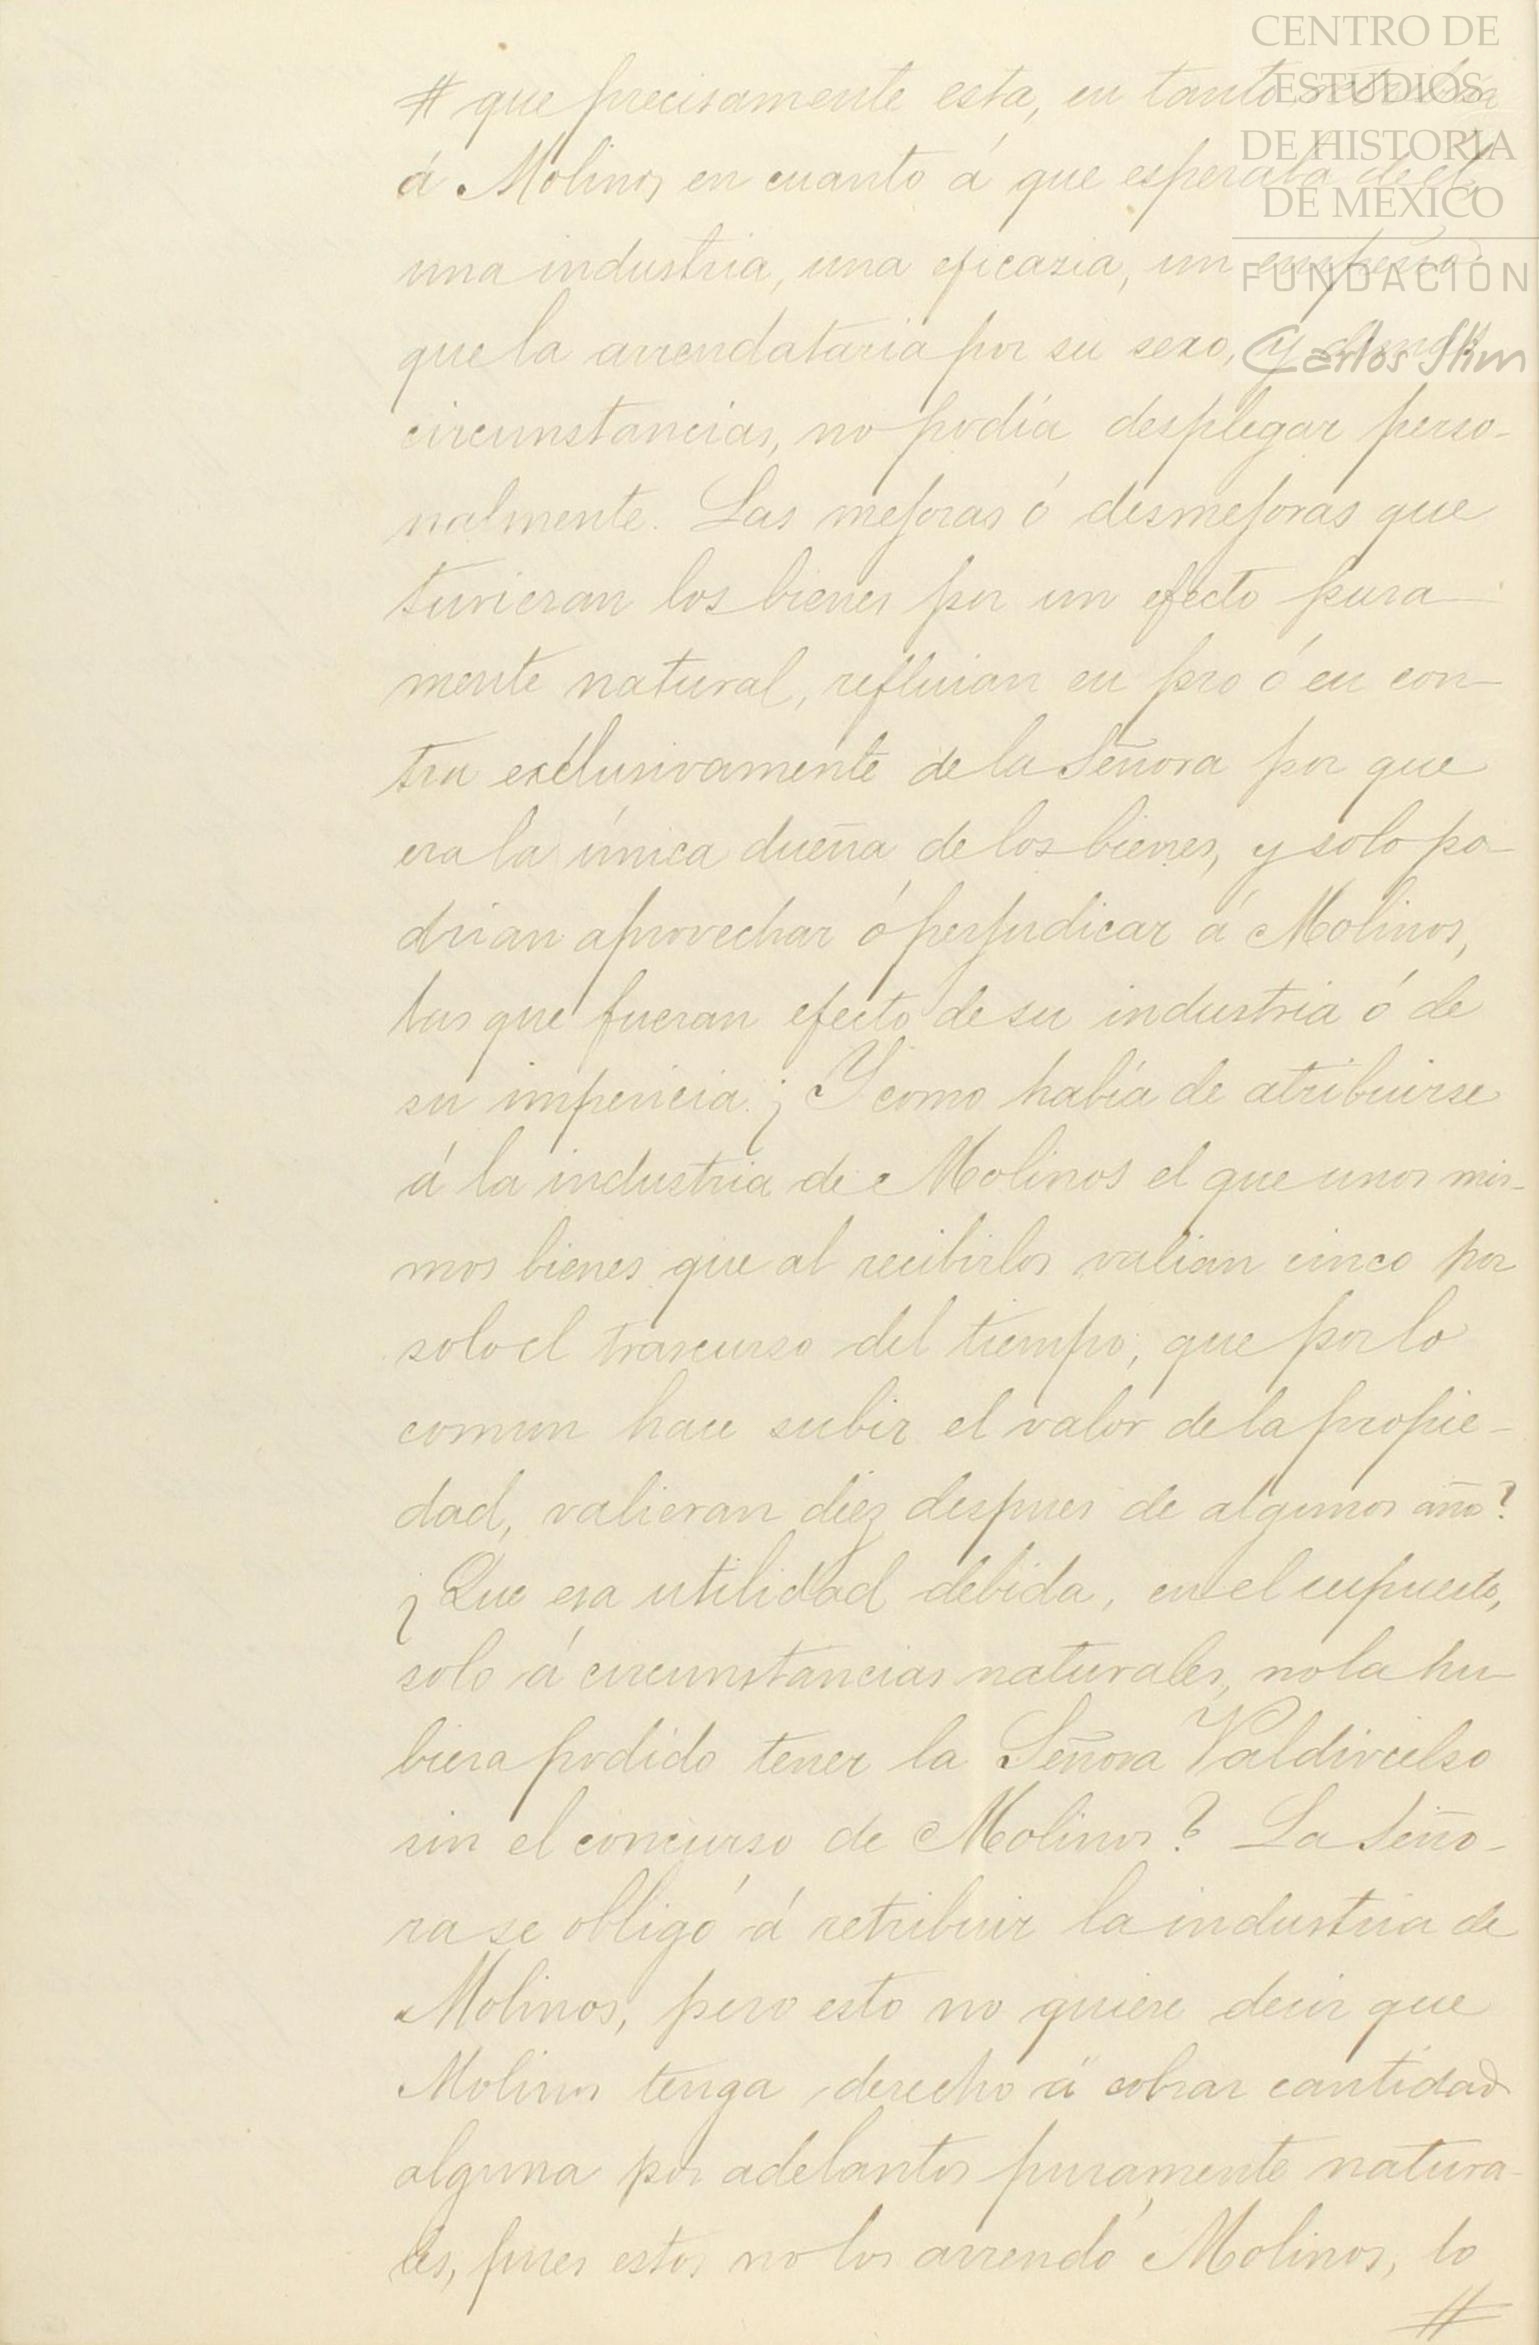 CENTRO DE
ESTUDIOS
DE HISTORIA
DE MEXICO
FUNDACION
Carlos Slim
# que precisamente esta, en tanto
á Molinos en cuanto á que esperaba de él,
una industria, una eficazia, un empeño
que la arrendataria por su sexo, y demas
circunstancias, no podía desplegar perso-
nalmente. Las mejoras ó desmejoras que
tuvieran los bienes por un efecto pura-
mente natural, refluian en pro ó en con-
tra exclusivamente de la Señora por que
era la única dueña de los bienes, y solo po-
drian aprovechar ó perjudicar á Molinos,
las que fueran efecto de su industria ó de
su impericia. ¿Y como había de atribuirse
á la industria de Molinos el que unos mis-
mos bienes que al recibirlos valian cinco por
solo el trascurso del tiempo, que por lo
comun hace subir el valor de la propie-
dad, valieran diez despues de algunos año?
¿Que esa utilidad debida, en el supuesto,
solo á circunstancias naturales, no la hu-
biera podido tener la Señora Valdivielso
sin el concurso de Molinos? La Seño-
ra se obligó á retribuir la industria de
Molinos, pero esto no quiere decir que
Molinos tenga derecho á cobrar cantidad
alguna por adelantos puramente natura-
les, pues estos no los arrendó Molinos, lo
#